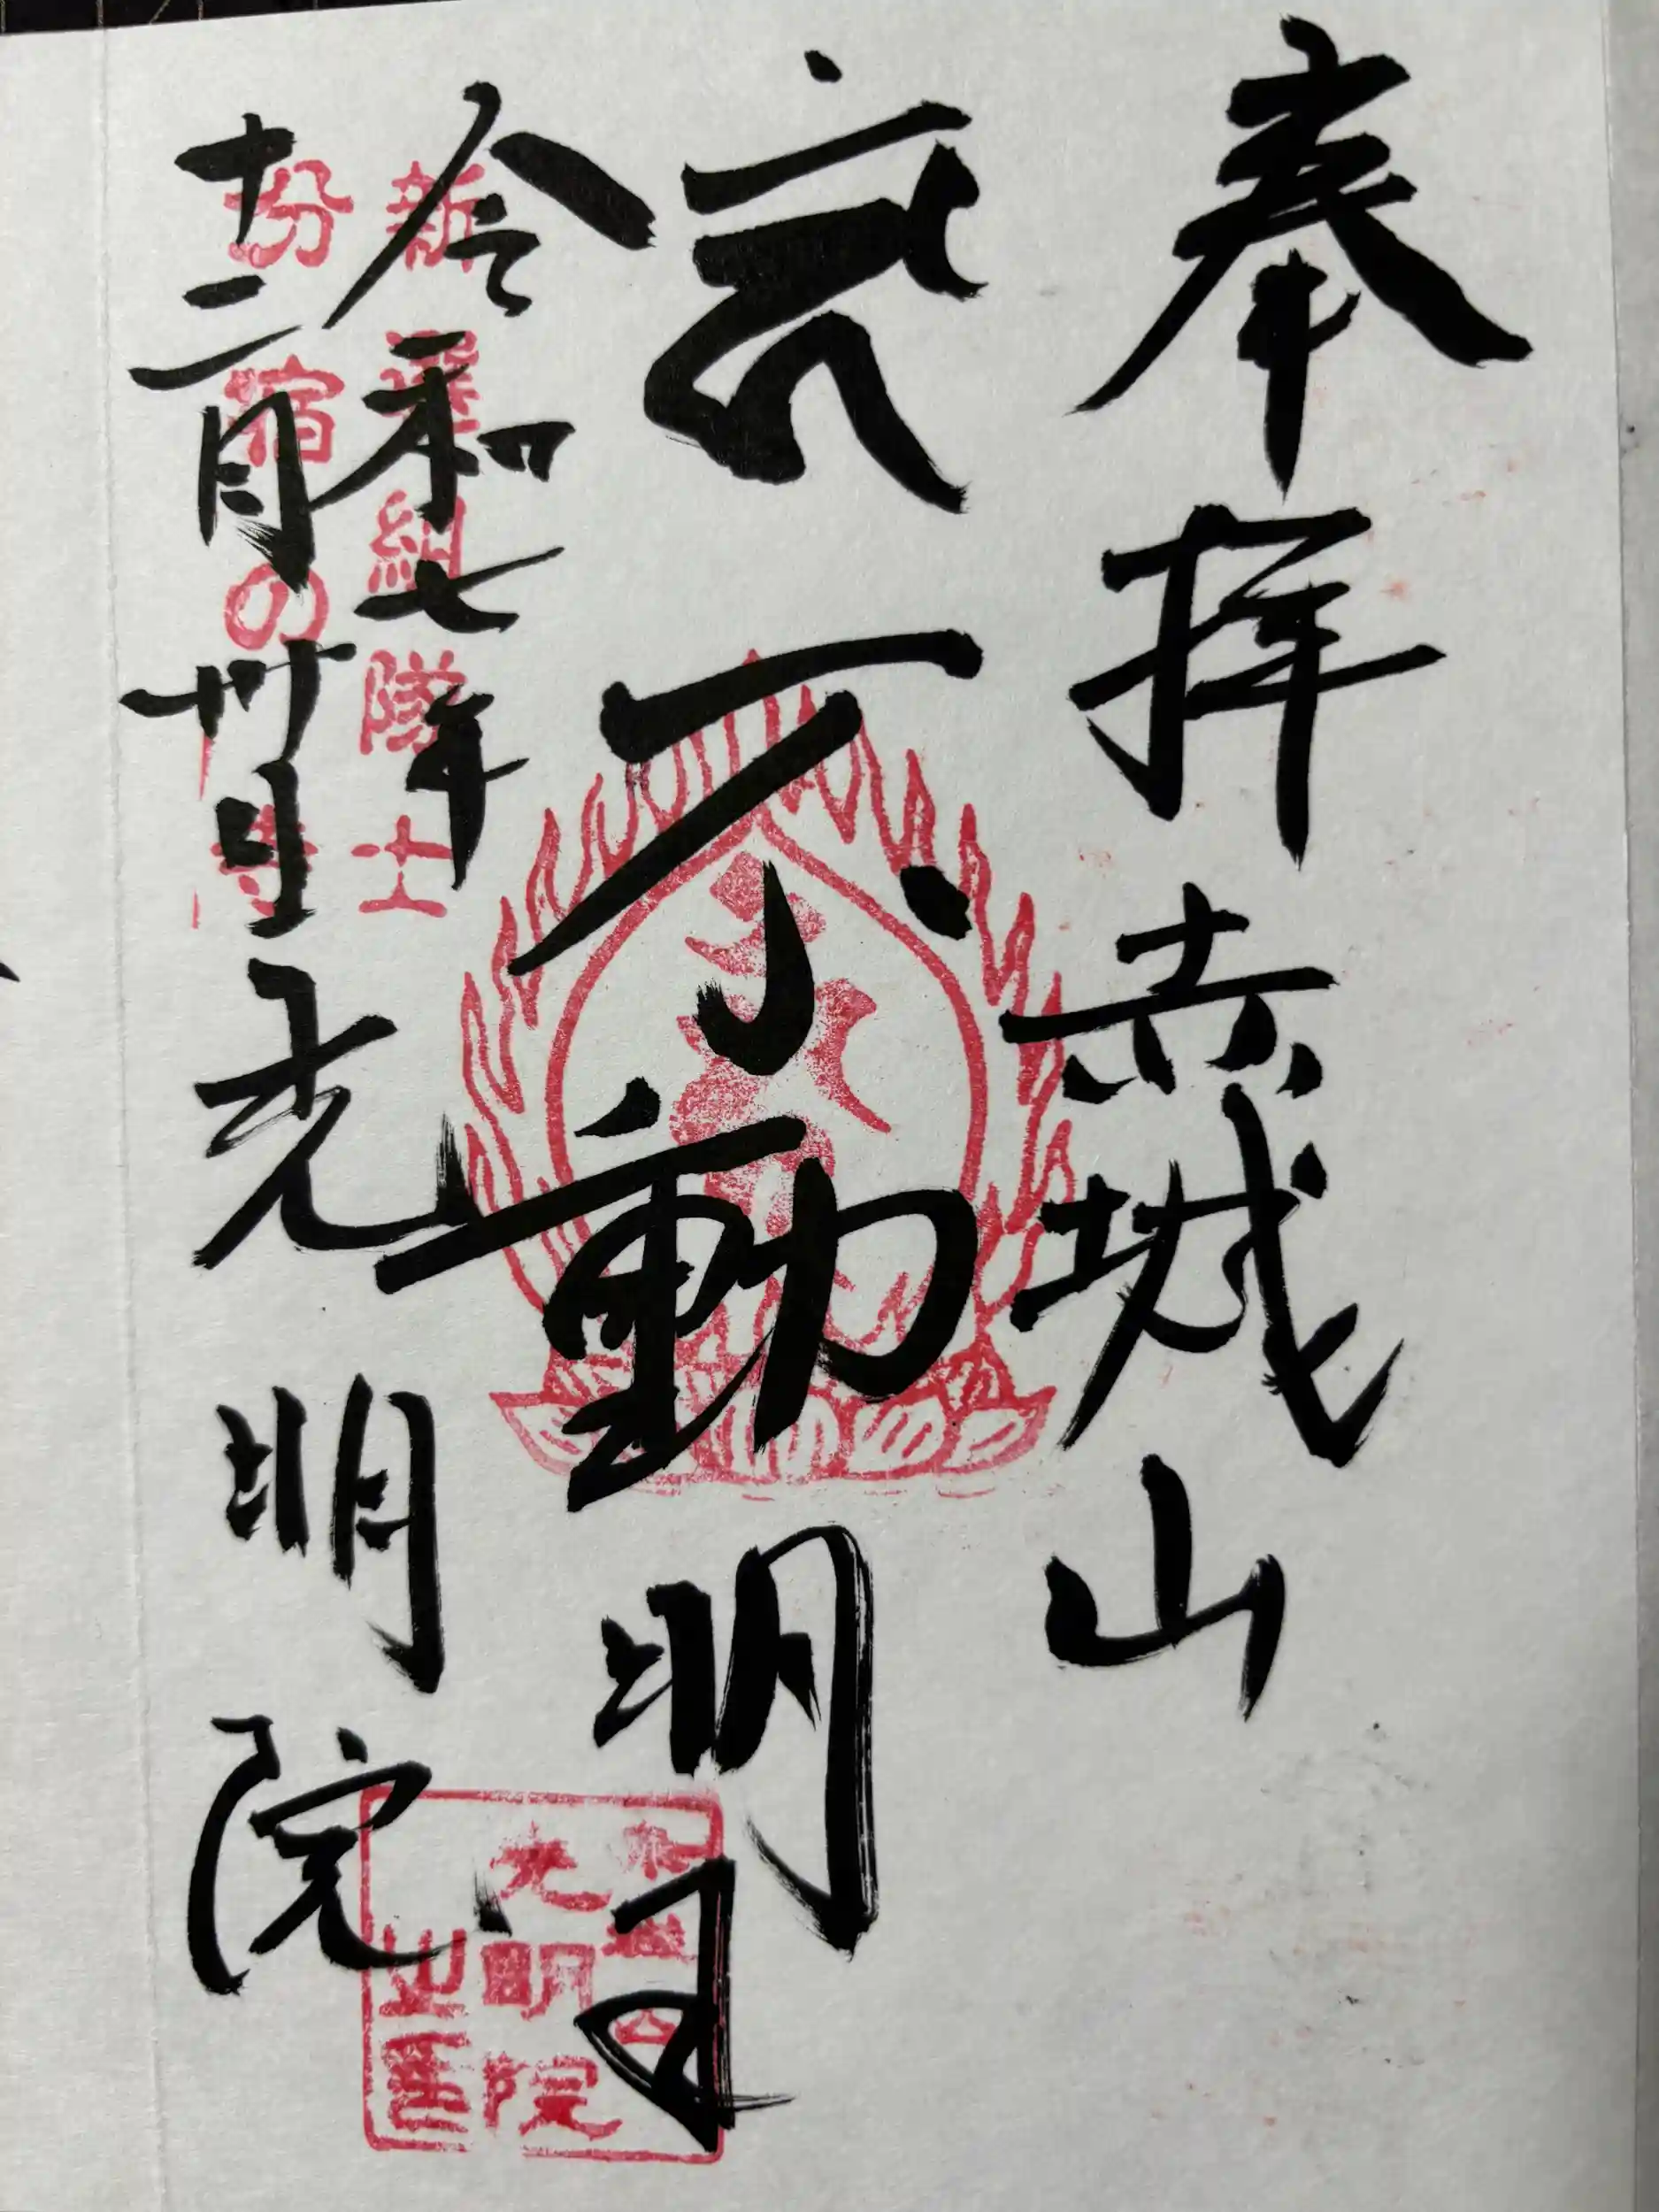 奉拝 赤城山
不動明王
令和七年
十二月卅日 光明院
新選組隊士
分宿の寺
光明院